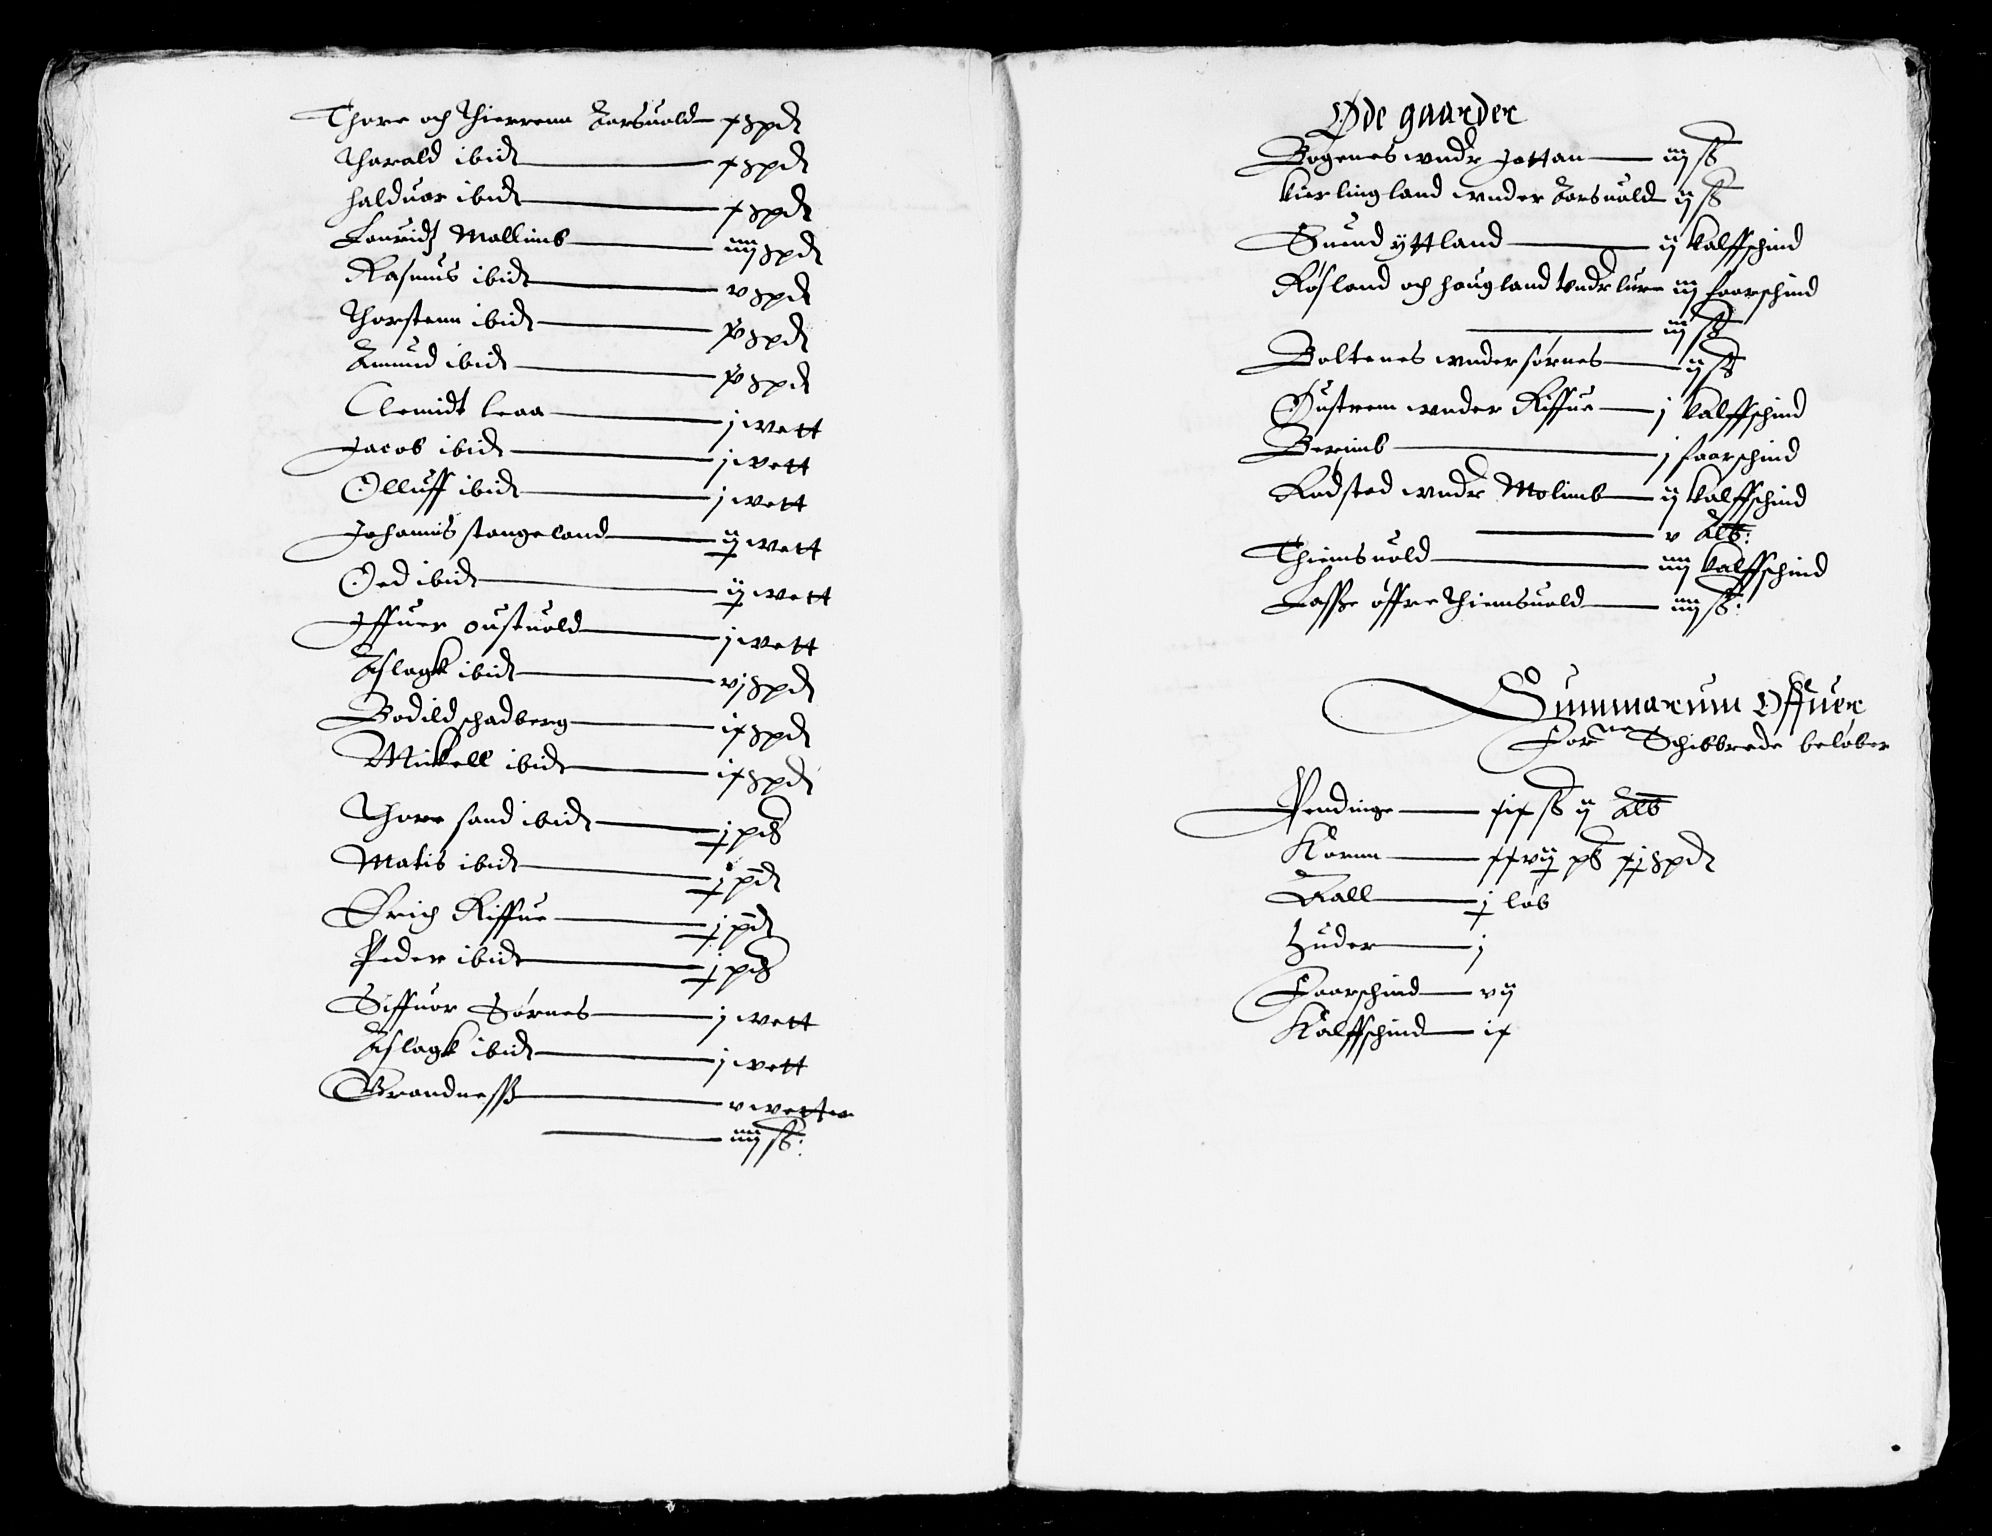 Thore och Thierrenn Aarsuold x spd
Tharald ibid x spd
Halduor ibid x spd
Lauridtz Mollimb iiij spd
Rasmus ibid v spd
Thorstenn ibid x̶v spd
Amund ibid x̶v spd
Clemidt leaa j wett
Jacob ibid j wett
Olluff ibid j wett
Johannis stangeland ij wett
Oed ibid ij wett
Iffuer oustuold j wett
Aslagk ibid vj spd
Bodild schadberg ix spd
Mickell ibid ix spd
Thore sand ibid j pd
Matis ibid j pd
Erich Riffue j pd
Peder ibid j pd
Siffuor Sørnes j wett
Aslagk ibid j wett
Brandness v wetter
iiij ß:
Øde gaarder
Bogenes wndr Jattan iij ß
kierlingland wnder Aarsuold ij ß
Suend yttland ij kalffschind
Røsland och hougland vndr lure iij faarschind
iij ß
Boltenes wnder sørnes ij ß
Oustrem wnder Riffue j kalffschind
Berimb j faarschind
Rødsted wndr Molimb ij kalffschind
v Alb:
Thiemsuold iiij kalffschind
Lasse øffre Thiemsuold iiij ß:
Summarum Offuer
For ne Schibbrede beløber
Pendinge xix ß ij Alb
Kornn xxvij pd xj spd
Aall j løb
Huder j
Faarschind vij
Kalffschind ix